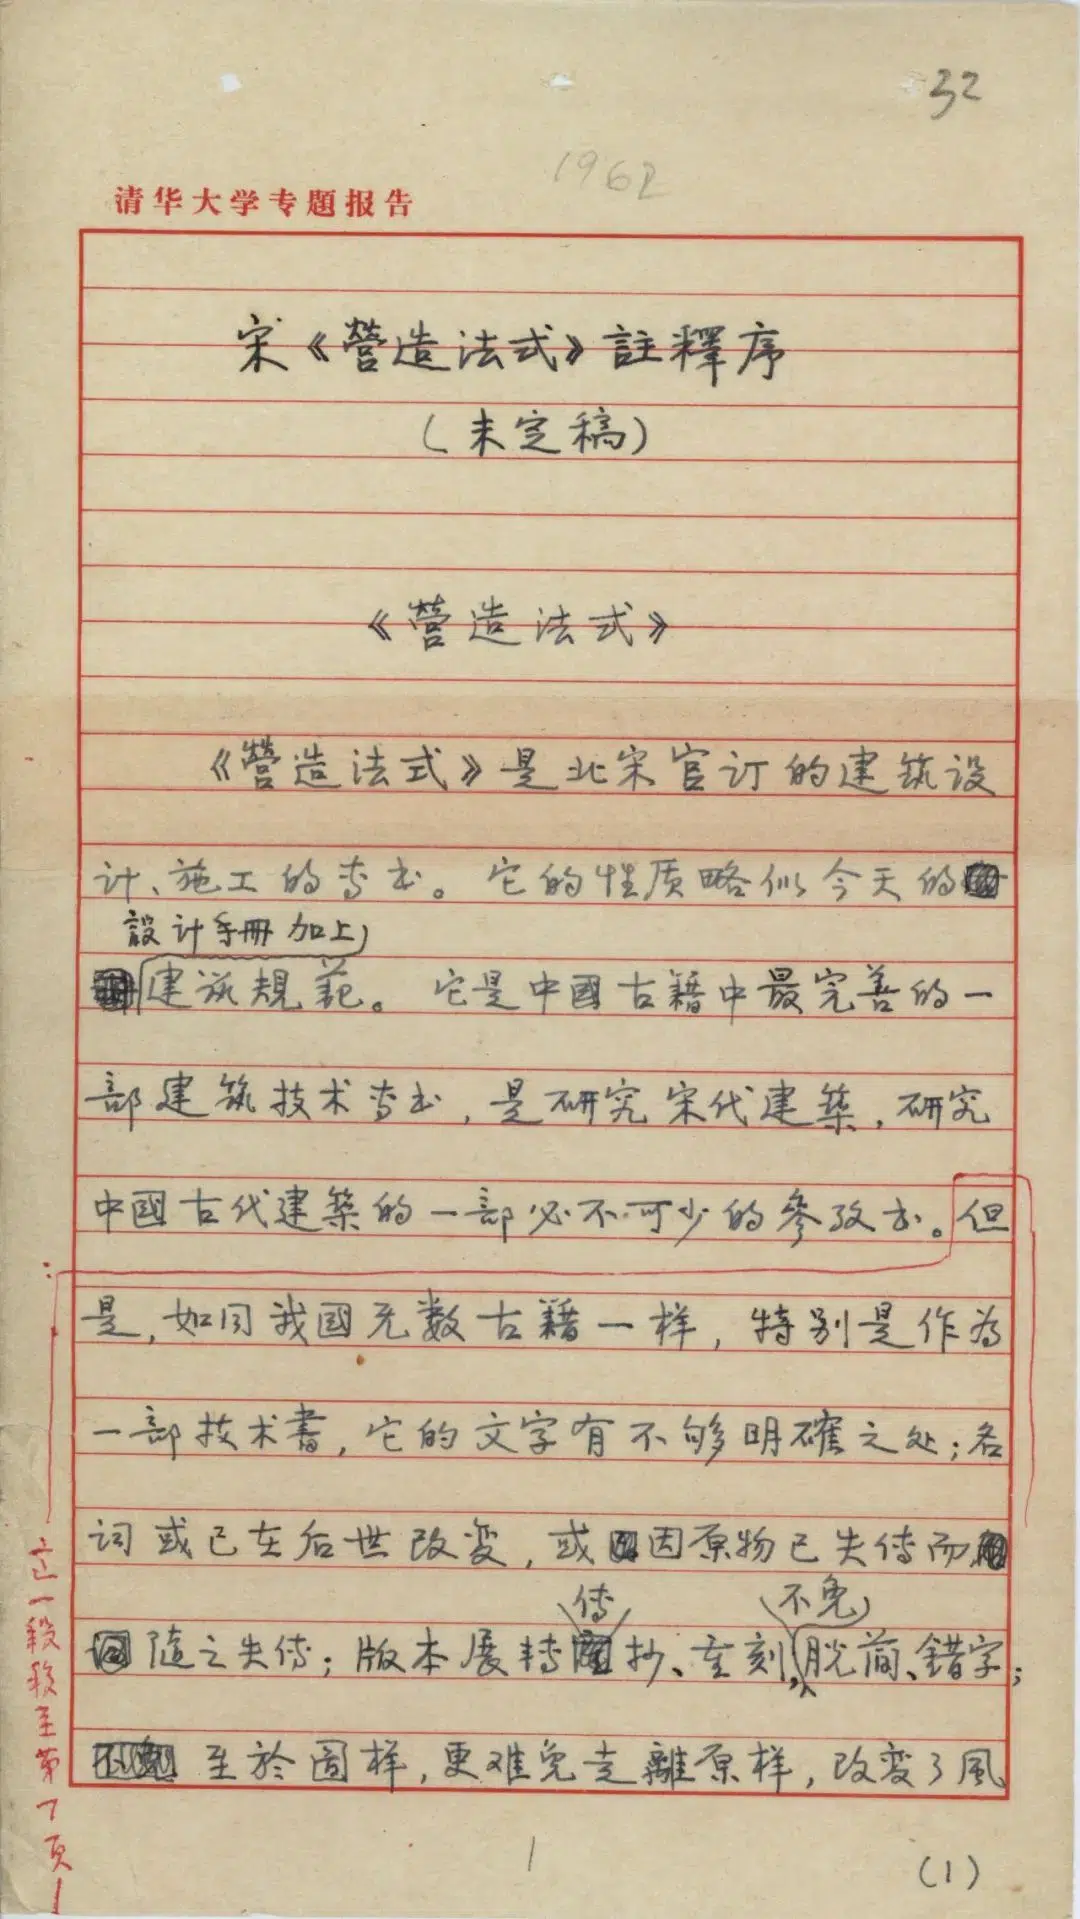 32
1962
清华大学专题报告
宋《營造法式》註釋序
(未定稿)
《營造法式》
《營造法式》是北宋官订的建筑设
计、施工的专书。它的性质略似今天的
設计手册加上
建筑規范。它是中國古籍中最完善的一
部建筑技术专书，是研究宋代建築，研究
中國古代建築的一部必不可少的參攷书。但
是，如同我國无数古籍一样，特别是作为
一部技术書，它的文字有不够明確之处；名
词或已在后世改变，或因原物已失传而
传 不免
随之失传；版本展转抄、重刻，脱简、錯字；
至於圖样，更难免走離原样，改变了風
这一段移至第7页
1
(1)